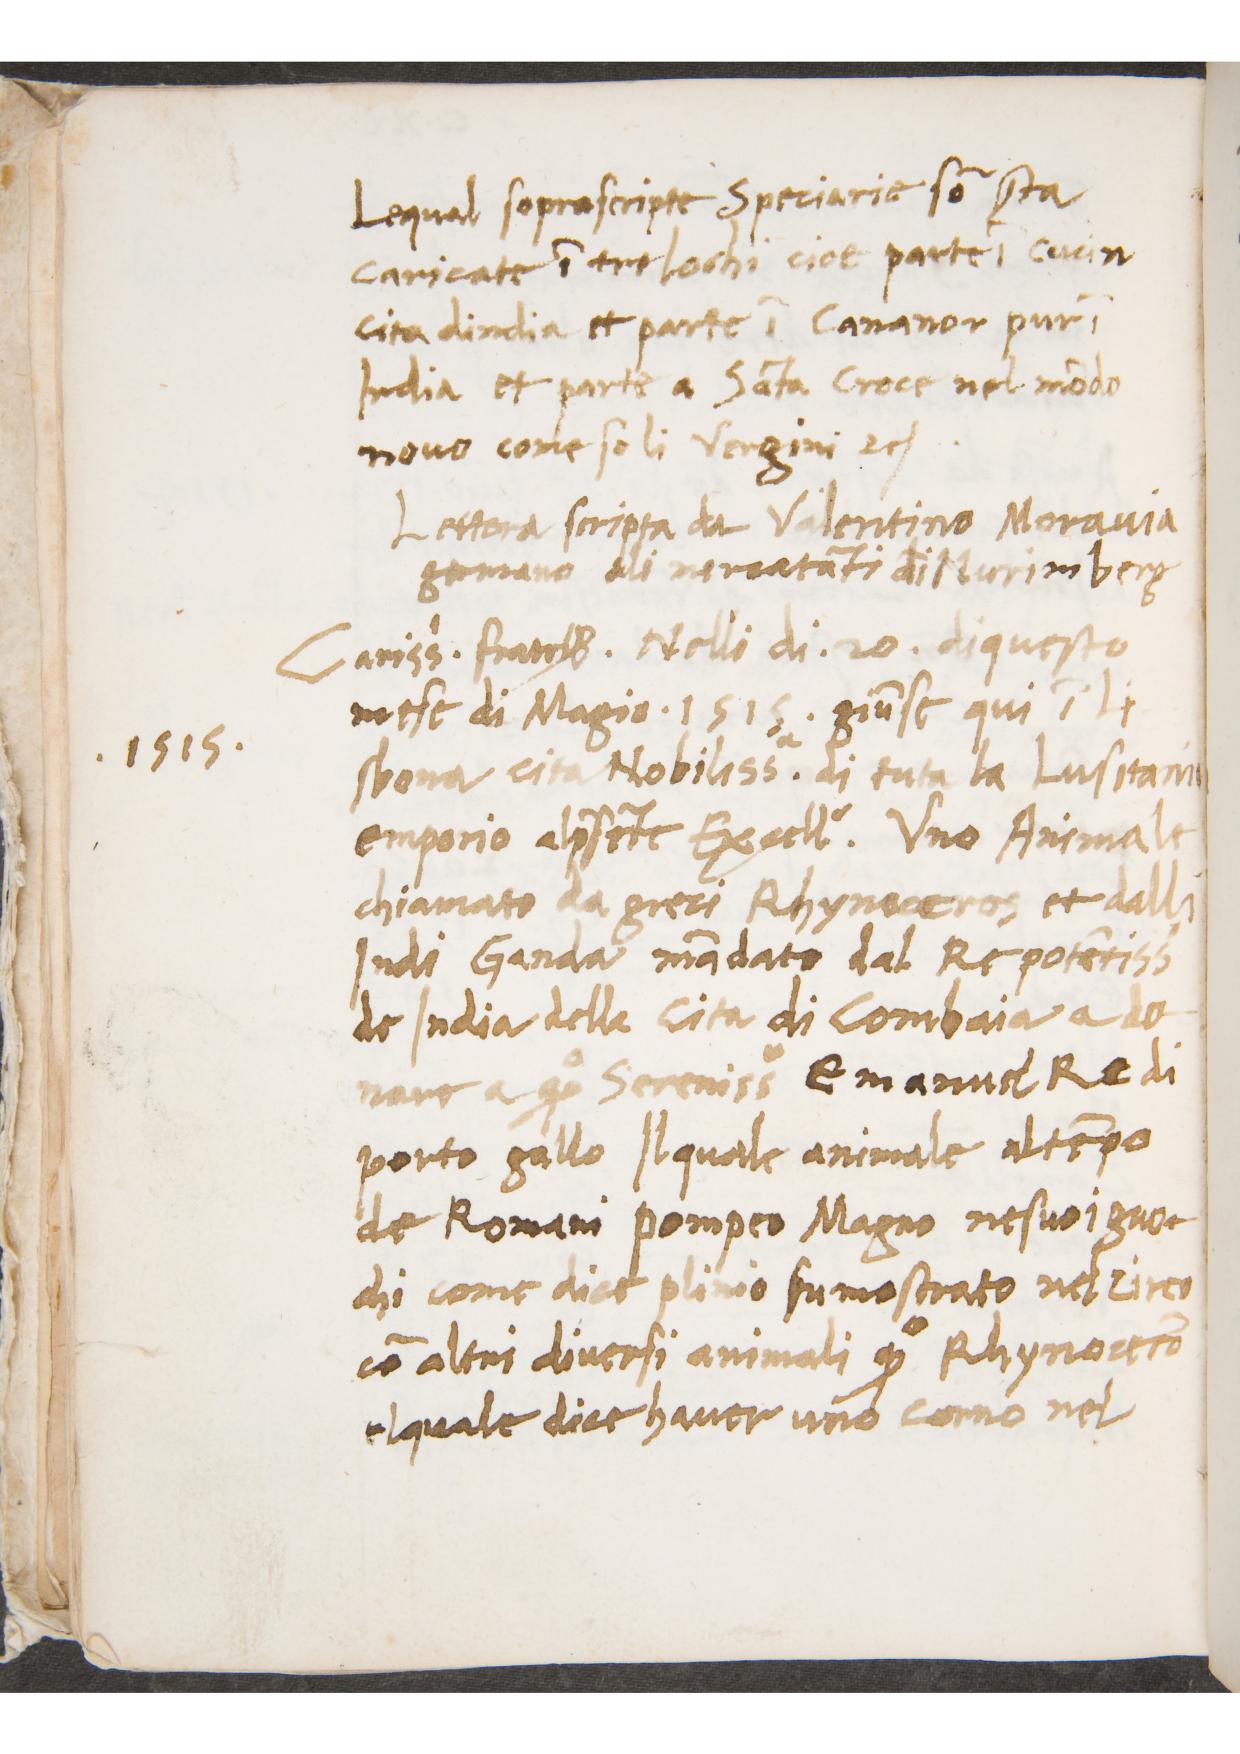 Lequal soprascripte Speciarie sõ sta
caricate ĩ tre lochi cioe parte ĩ Cucin
cita dindia et parte ĩ Cananor pur ĩ
India et parte a Sãta Croce nel mõdo
novo come so li Vergini
Lettera scripta da Valentino Moravia
germano ali mercatãti di Nurimberg
Cariss.i fratelli. Nelli di .20. di questo
mese di Magio .1515. giũse qui ĩ Li
sbona cita Nobiliss.a di tuta la Lusitania
emporio al psẽte Excell.e. Vno Animale
chiamato da greci Rhynoceros et dalli
Indi Ganda mãdato dal Re potẽtiss.o
de India della Cita di Combaia a do
nare a qo Sereniss.o Emanuel Re di
porto gallo Il quale animale al tẽpo
de Romani pompeo Magno ne suoi guo
chi come dice plinio fu mostrato nel Zirco
cõ altri diversi animali qo Rhynocerõ
elquale dice haver uno corno nel
.1515.